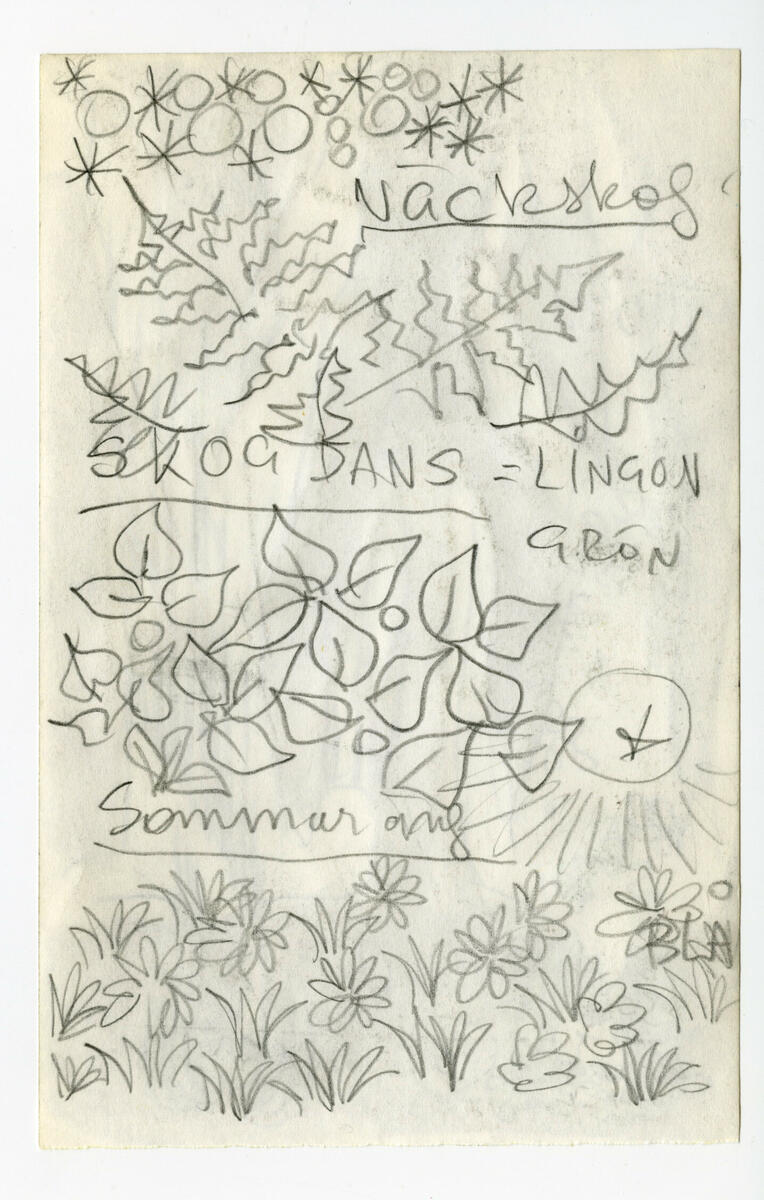 Näckskog
SKOG DANS = LINGON
GRÖN
Sommar äng
BLÅ